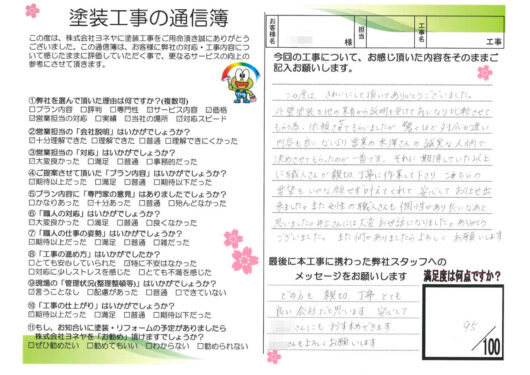 塗装工事の通信簿
この度は、株式会社ヨネヤに塗装工事をご用命頂き誠にありがとう
ございました。この通信簿は、お客様に弊社の対応・工事内容につ
いて感じたままに評価していただく事で、更なるサービスの向上の
参考にさせて頂きます。
①弊社を選んで頂いた理由は何ですか?(複数可)
プラン内容 評判 専門性 サービス内容 価格
営業担当の対応 実績 当社の場所 対応スピード
②営業担当の「会社説明」はいかがでしたか?
十分理解できた 理解できた 普通 理解できにくかった
③営業担当の「対応」はいかがでしたか?
大変良かった 満足 普通 事務的だった
④ご提案させて頂いた「プラン内容」はいかがでしたか?
期待以上だった 満足 普通 期待以下だった
⑤プラン内容に「専門家の意見」はありましたでしょうか?
かなりあった 十分あった 普通 殆んどなかった
⑥「職人の対応」はいかがでしたか?
大変良かった 満足 普通 良くなかった
⑦「職人の仕事の姿勢」はいかがでしたか?
期待以上だった 満足 普通 雑だった
⑧「工事の進め方」はいかがでしたか?
とても安心していられた 特に不安はなかった
対応に少しストレスを感じた とても不満を感じた
⑨現場の「管理状況(整理整頓等)」はいかがでしたか?
言うことなし 配慮があった 普通 できていない
⑩「工事の仕上がり」はいかがでしたか?
期待以上だった 満足 普通 期待以下だった
⑪もし、お知合いに塗装・リフォームの予定がありましたら
株式会社ヨネヤを「お勧め」頂けますでしょうか?
ぜひ勧めたい 勧めてもいい わからない 勧められない
お客様名 様 工事名 工事
今回の工事について、お感じ頂いた内容をそのままご
記入お願いします。
この度は、きれいにして頂いてありがとうございました。
外壁塗装を他の業者から説明を受けて気になり比較させて
もらう為、依頼させてもらいましたが 驚くほど対応が速い
内容も良い ならば 営業の米澤さんの誠実な人柄で
決めさせてもらったのが一番です。それに期待していた以上
に職人さんが親切、丁寧に作業して下さり こちらの
要望をいやな顔せず叶えてくれて 安心してお任せ出
来ました。また女性の職人さんも個性があり良いなあと
思いました。井上さんには大変お世話になりました。ありがとう
ございました。また何かありましたらよろしくお願いします
最後に本工事に携わった弊社スタッフへの
メッセージをお願いします
どの方も 親切 丁寧 とても
良い会社だと思います 安心して
さんにもおすすめできます。
さんもよろしくお願いします
満足度は何点ですか?
95
/100